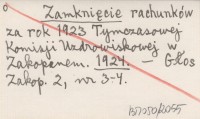 Zamknięcie rachunków
za rok 1923 Tymczasowej
Komisji Uzdrowiskowej w
Zakopanem. 1924. – Głos
Zakop. 2, nr 3-4.